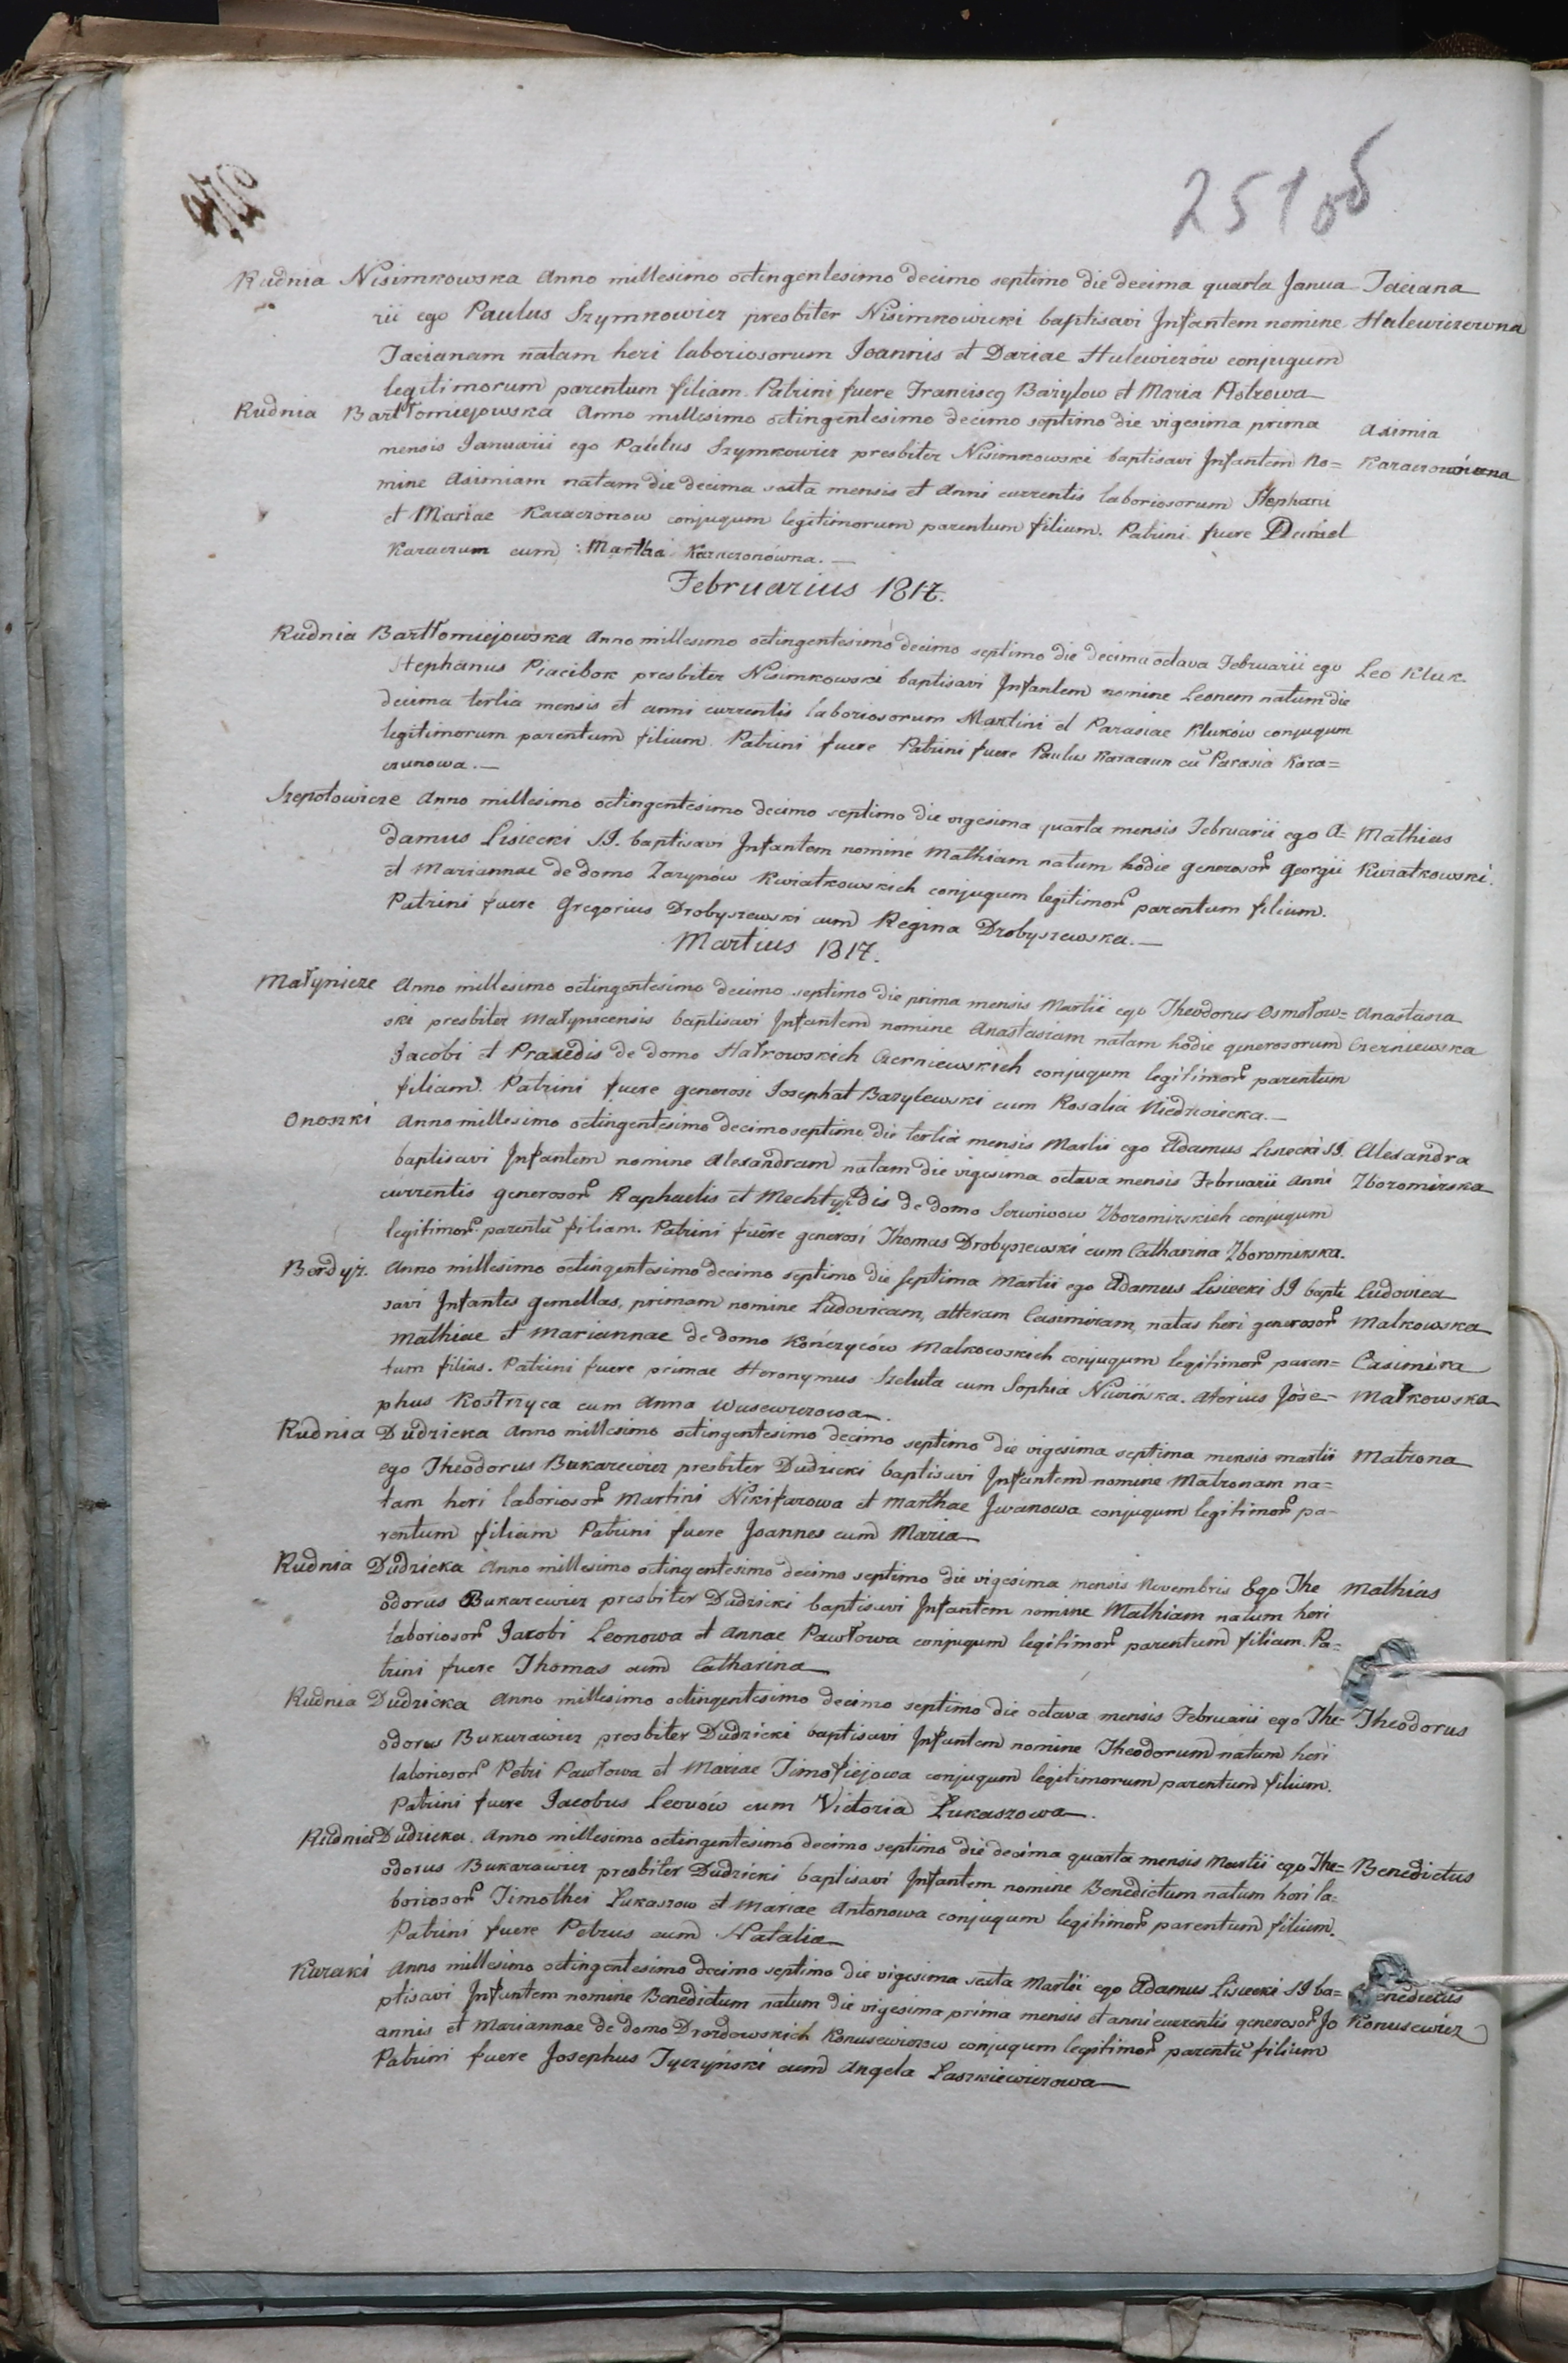 251 об
Rudnia Nisimkowska Anno millesimo octingentesimo decimo septimo die decima quarta Janua- Taciana
rii ego Paulus Szymkowicz presbiter Nisimkowicki baptisavi Infantem nomine Hulewiczowna
Tacianam natam heri laboriosorum Joannis et Dariae Hulewiczów conjugum
legitimorum parentum filiam. Patrini fuere Franciscq Baryłow et Maria Piotrowa
Rudnia Bartłomiejowska Anno millesimo octingentesimo decimo septimo die vigesima prima Axinia
mensis Januarii ego Paulus Szymkowicz presbiter Nisimkowski baptisavi Infantem no= Karaczonówna
mine Axiniam natam die decima sexta mensis et Anni currentis laboriosorum Stephani
et Mariae Karaczonow conjugum legitimorum parentum filium. Patrini fuere Daniel
Karaczun cum Martha Karaczonówna.—
Februarius 1817.
Rudnia Bartłomiejowska Anno millesimo octingentesimo decimo septimo die decima octava Februarii ego Leo Kluk.
Stephanus Piacibok presbiter Nisimkowski baptisavi Infantem nomine Leonem natum die
decima tertia mensis et anni currentis laboriosorum Martini et Parasiae Kluków conjugum
legitimorum parentum filium. Patrini fuere Patrini fuere Paulus Karaczun cū Parasia Kara=
czunowa.—
Szepotowicze Anno millesimo octingentesimo decimo septimo die vigesima quarta mensis Februarii ego A= Mathias
damus Lisiecki SJ. baptisavi Infantem nomine Mathiam natum hodie generosor Georgii Kwiatkowski.
et Mariannae de domo Zarynów Kwiatkowskich conjugum legitimor parentum filium.
Patrini fuere Gregorius Drobyszewski cum Regina Drobyszewska.—
Martius 1817.
Małynicze Anno millesimo octingentesimo decimo septimo die prima mensis Martii ego Theodorus Osmołow= Anastasia
ski presbiter Małynicensis baptisavi Infantem nomine Anastasiam natam hodie generosorum Czerniewska
Jacobi et Praxedis de domo Hałkowskich Czerniewskich conjugum legitimor parentum
filiam. Patrini fuere generosi Josephat Bazylewski cum Rosalia Niedzwiecka.—
Onoszki Anno millesimo octingentesimo decimo septimo die tertia mensis Martii ego Adamus Lisiecki SJ. Alexandra
baptisavi Infantem nomine Alexandram natam die vigesima octava mensis Februarii Anni Zboromirska
currentis generosor Raphaelis et Mechtyldis de domo Serwiwow Zboromirskich conjugum
legitimor parentū filiam. Patrini fuere generosi Thomas Drobyszewski cum Catharina Zboromirska.
Berdyż. Anno millesimo octingentesimo decimo septimo die septima Martii ego Adamus Lisiecki SJ bapti Ludovica
savi Infantes gemellas, primam nomine Ludovicam, alteram Casimiram, natas heri generosor Malkowska
Mathiae et Mariannae de domo Kończyców Malkowskich conjugum legitimor paren= Casimira
tum filias. Patrini fuere primae Heronymus Szeluta cum Sophia Niwińska. Aterius Jose= Małkowska
phus Kostrzyca cum Anna Wasewiczowa.
Rudnia Dudzicka Anno millesimo octingentesimo decimo septimo die vigesima septima mensis martii Matrona
ego Theodorus Bukarewicz presbiter Dudzicki baptisavi Infantem nomine Matronam na=
tam heri laboriosor Martini Nikifarowa et Marthae Jwanowa conjugum legitimor pa-
rentum filiam Patrini fuere Joannes cum Maria
Rudnia Dudzicka Anno millesimo octingentesimo decimo septimo die vigesima mensis Novembris Ego The Mathias
odorus Bukarewicz presbiter Dudzicki baptisavi Infantem nomine Mathiam natum heri
laboriosor Jacobi Leonowa et Annae Pawłowa conjugum legitimor parentum filium. Pa=
trini fuere Thomas cum Catharina
Rudnia Dudzicka Anno millesimo octingentesimo decimo septimo die octava mensis Februarii ego The= Theodorus
odorus Bukurawicz presbiter Dudzicki baptisavi Infantem nomine Theodorum natum heri
laboriosor Petri Pawłowa et Mariae Timofiejowa conjugum legitimorum parentum filium.
Patrini fuere Jacobus Leonów cum Victoria Łukaszowa.
Rudnia Dudzicka. Anno millesimo octingentesimo decimo septimo die decima quarta mensis Martii ego The= Benedictus
odorus Bukarawicz presbiter Dudzicki baptisavi Infantem nomine Benedictum natum heri la=
boriosor Timothei Łukaszow et Mariae Antonowa conjugum legitimor parentum filium.
Patrini fuere Petrus cum Natalia
Kuraki Anno millesimo octingentesimo decimo septimo die vigesima sexta Martii ego Adamus Lisiecki SJ ba= Benedictus
ptisavi Infantem nomine Benedictum natum die vigesima prima mensis et anni currentis generosor Jo Konusewicz
annis et Mariannae de domo Drozdowskich Konusewiczow conjugum legitimor parentū filium
Patrini fuere Josephus Tyczyński cum Angela Laszkiewiczowa